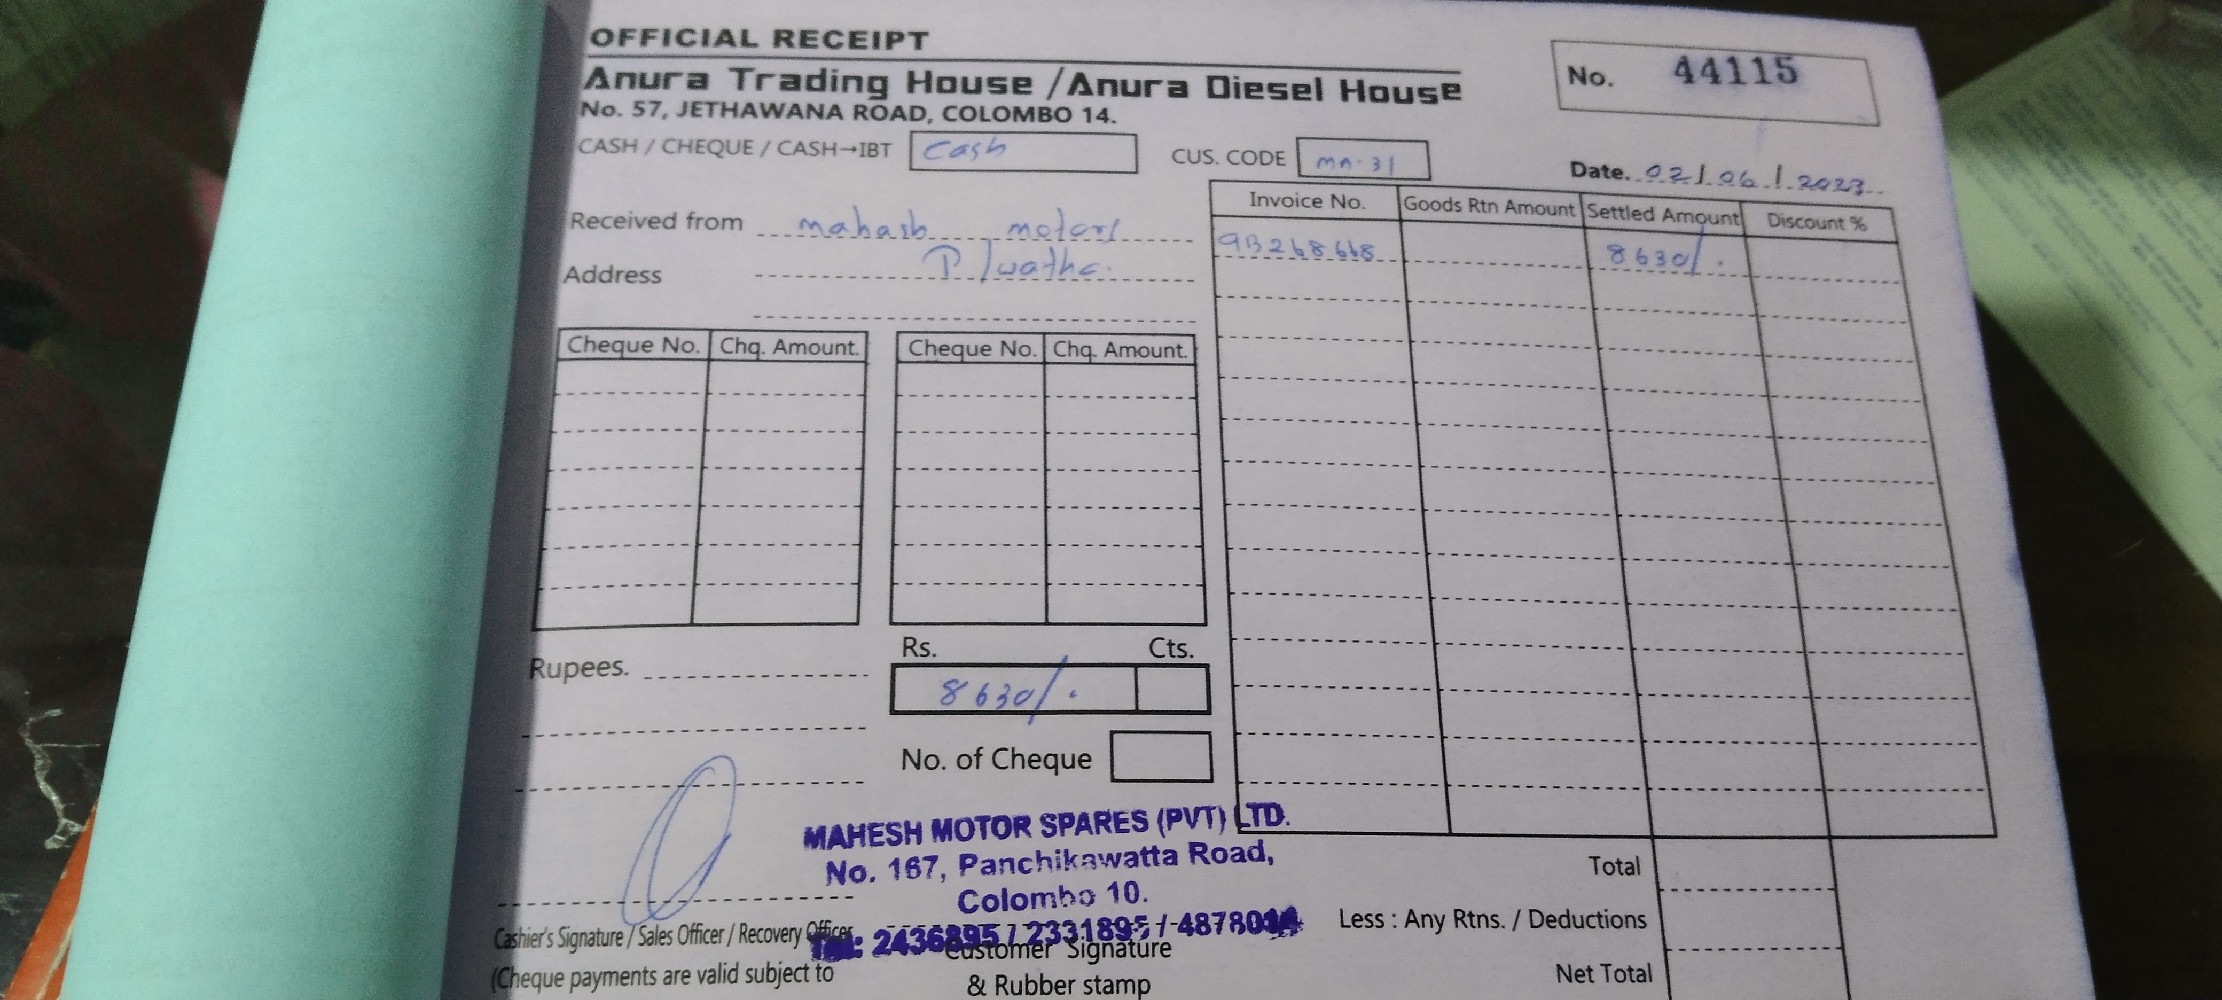 OFFICIAL RECEIPT
Anura Trading House / Anura Diesel House
No. 57, JETHAWANA ROAD, COLOMBO 14.
No. 44115
CASH / CHEQUE / CASH→IBT Cash
CUS. CODE MA-31
Date. 02/06/2023
Received from mahash motors
Address P/watha.
Invoice No. Goods Rtn Amount Settled Amount Discount %
9B268668 8630/.
Cheque No. Chq. Amount. Cheque No. Chq. Amount.
Rs. Cts.
Rupees. 8630/.
No. of Cheque
MAHESH MOTOR SPARES (PVT) LTD.
No. 167, Panchikawatta Road,
Colombo 10.
Tel: 2436895 / 2331895 / 4878014
Total
Less : Any Rtns. / Deductions
Net Total
Cashier's Signature / Sales Officer / Recovery Officer
(Cheque payments are valid subject to
Customer Signature
& Rubber stamp